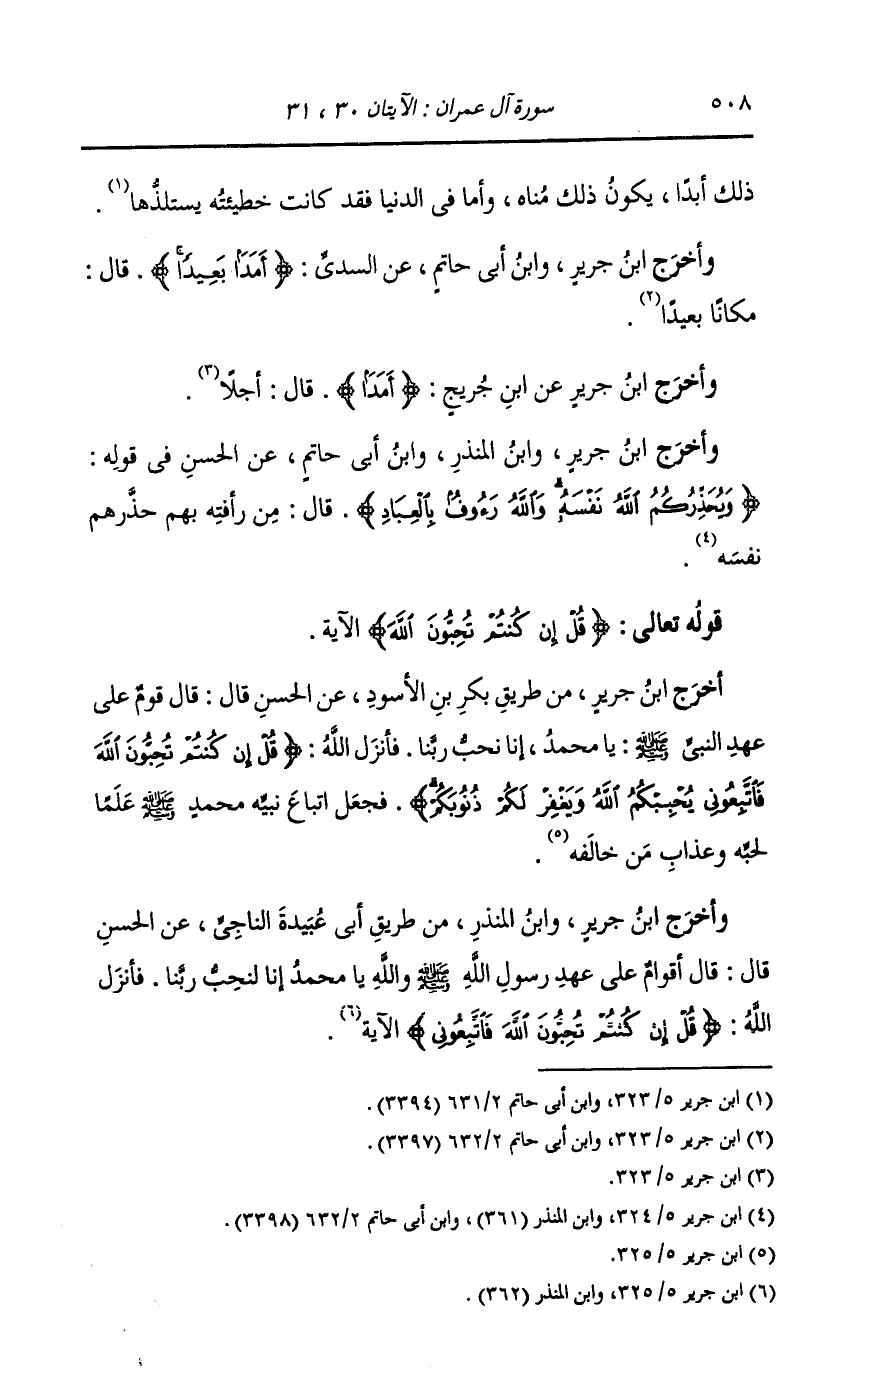 ٥٠٨ سورة آل عمران : الآيتان ٣٠ ، ٣١
ذلك أبدًا ، يكونُ ذلك مُناه ، وأما فى الدنيا فقد كانت خطيئتُه يستلذُّها(١) .
وأخرَج ابنُ جريرٍ ، وابنُ أبى حاتمٍ ، عن السدىِّ : ﴿ أَمَدًۢا بَعِيدًاۗ ﴾ . قال :
مكانًا بعيدًا(٢) .
وأخرَج ابنُ جريرٍ عن ابنِ جُريجٍ : ﴿ أَمَدًۢا ﴾ . قال : أجلًا(٣) .
وأخرَج ابنُ جريرٍ ، وابنُ المنذرِ ، وابنُ أبى حاتمٍ ، عن الحسنِ فى قولِه :
﴿ وَيُحَذِّرُكُمُ ٱللَّهُ نَفْسَهُۥۗ وَٱللَّهُ رَءُوفُۢ بِٱلْعِبَادِ ﴾ . قال : مِن رأفتِه بهم حذَّرهم
نفسَه(٤) .
قولُه تعالى : ﴿ قُلْ إِن كُنتُمْ تُحِبُّونَ ٱللَّهَ ﴾ الآية .
أخرَج ابنُ جريرٍ ، من طريقِ بكرِ بنِ الأسودِ ، عن الحسنِ قال : قال قومٌ على
عهدِ النبىِّ ﷺ : يا محمدُ ، إنا نحبُّ ربَّنا . فأنزَل اللَّهُ : ﴿ قُلْ إِن كُنتُمْ تُحِبُّونَ ٱللَّهَ
فَٱتَّبِعُونِى يُحْبِبْكُمُ ٱللَّهُ وَيَغْفِرْ لَكُمْ ذُنُوبَكُمْۗ ﴾ . فجعَل اتباعَ نبيِّه محمدٍ ﷺ عَلَمًا
لحبِّه وعذابِ مَن خالَفه(٥) .
وأخرَج ابنُ جريرٍ ، وابنُ المنذرِ ، من طريقِ أبى عُبَيدةَ الناجىِّ ، عن الحسنِ
قال : قال أقوامٌ على عهدِ رسولِ اللَّهِ ﷺ واللَّهِ يا محمدُ إنا لنحِبُّ ربَّنا . فأنزَل
اللَّهُ : ﴿ قُلْ إِن كُنتُمْ تُحِبُّونَ ٱللَّهَ فَٱتَّبِعُونِى ﴾ الآية(٦) .
(١) ابن جرير ٥/ ٣٢٣، وابن أبى حاتم ٦٣١/٢ (٣٣٩٤).
(٢) ابن جرير ٥/ ٣٢٣، وابن أبى حاتم ٦٣٢/٢ (٣٣٩٧).
(٣) ابن جرير ٥/ ٣٢٣.
(٤) ابن جرير ٥/ ٣٢٤، وابن المنذر (٣٦١) ، وابن أبى حاتم ٦٣٢/٢ (٣٣٩٨).
(٥) ابن جرير ٥/ ٣٢٥.
(٦) ابن جرير ٥/ ٣٢٥، وابن المنذر (٣٦٢) .